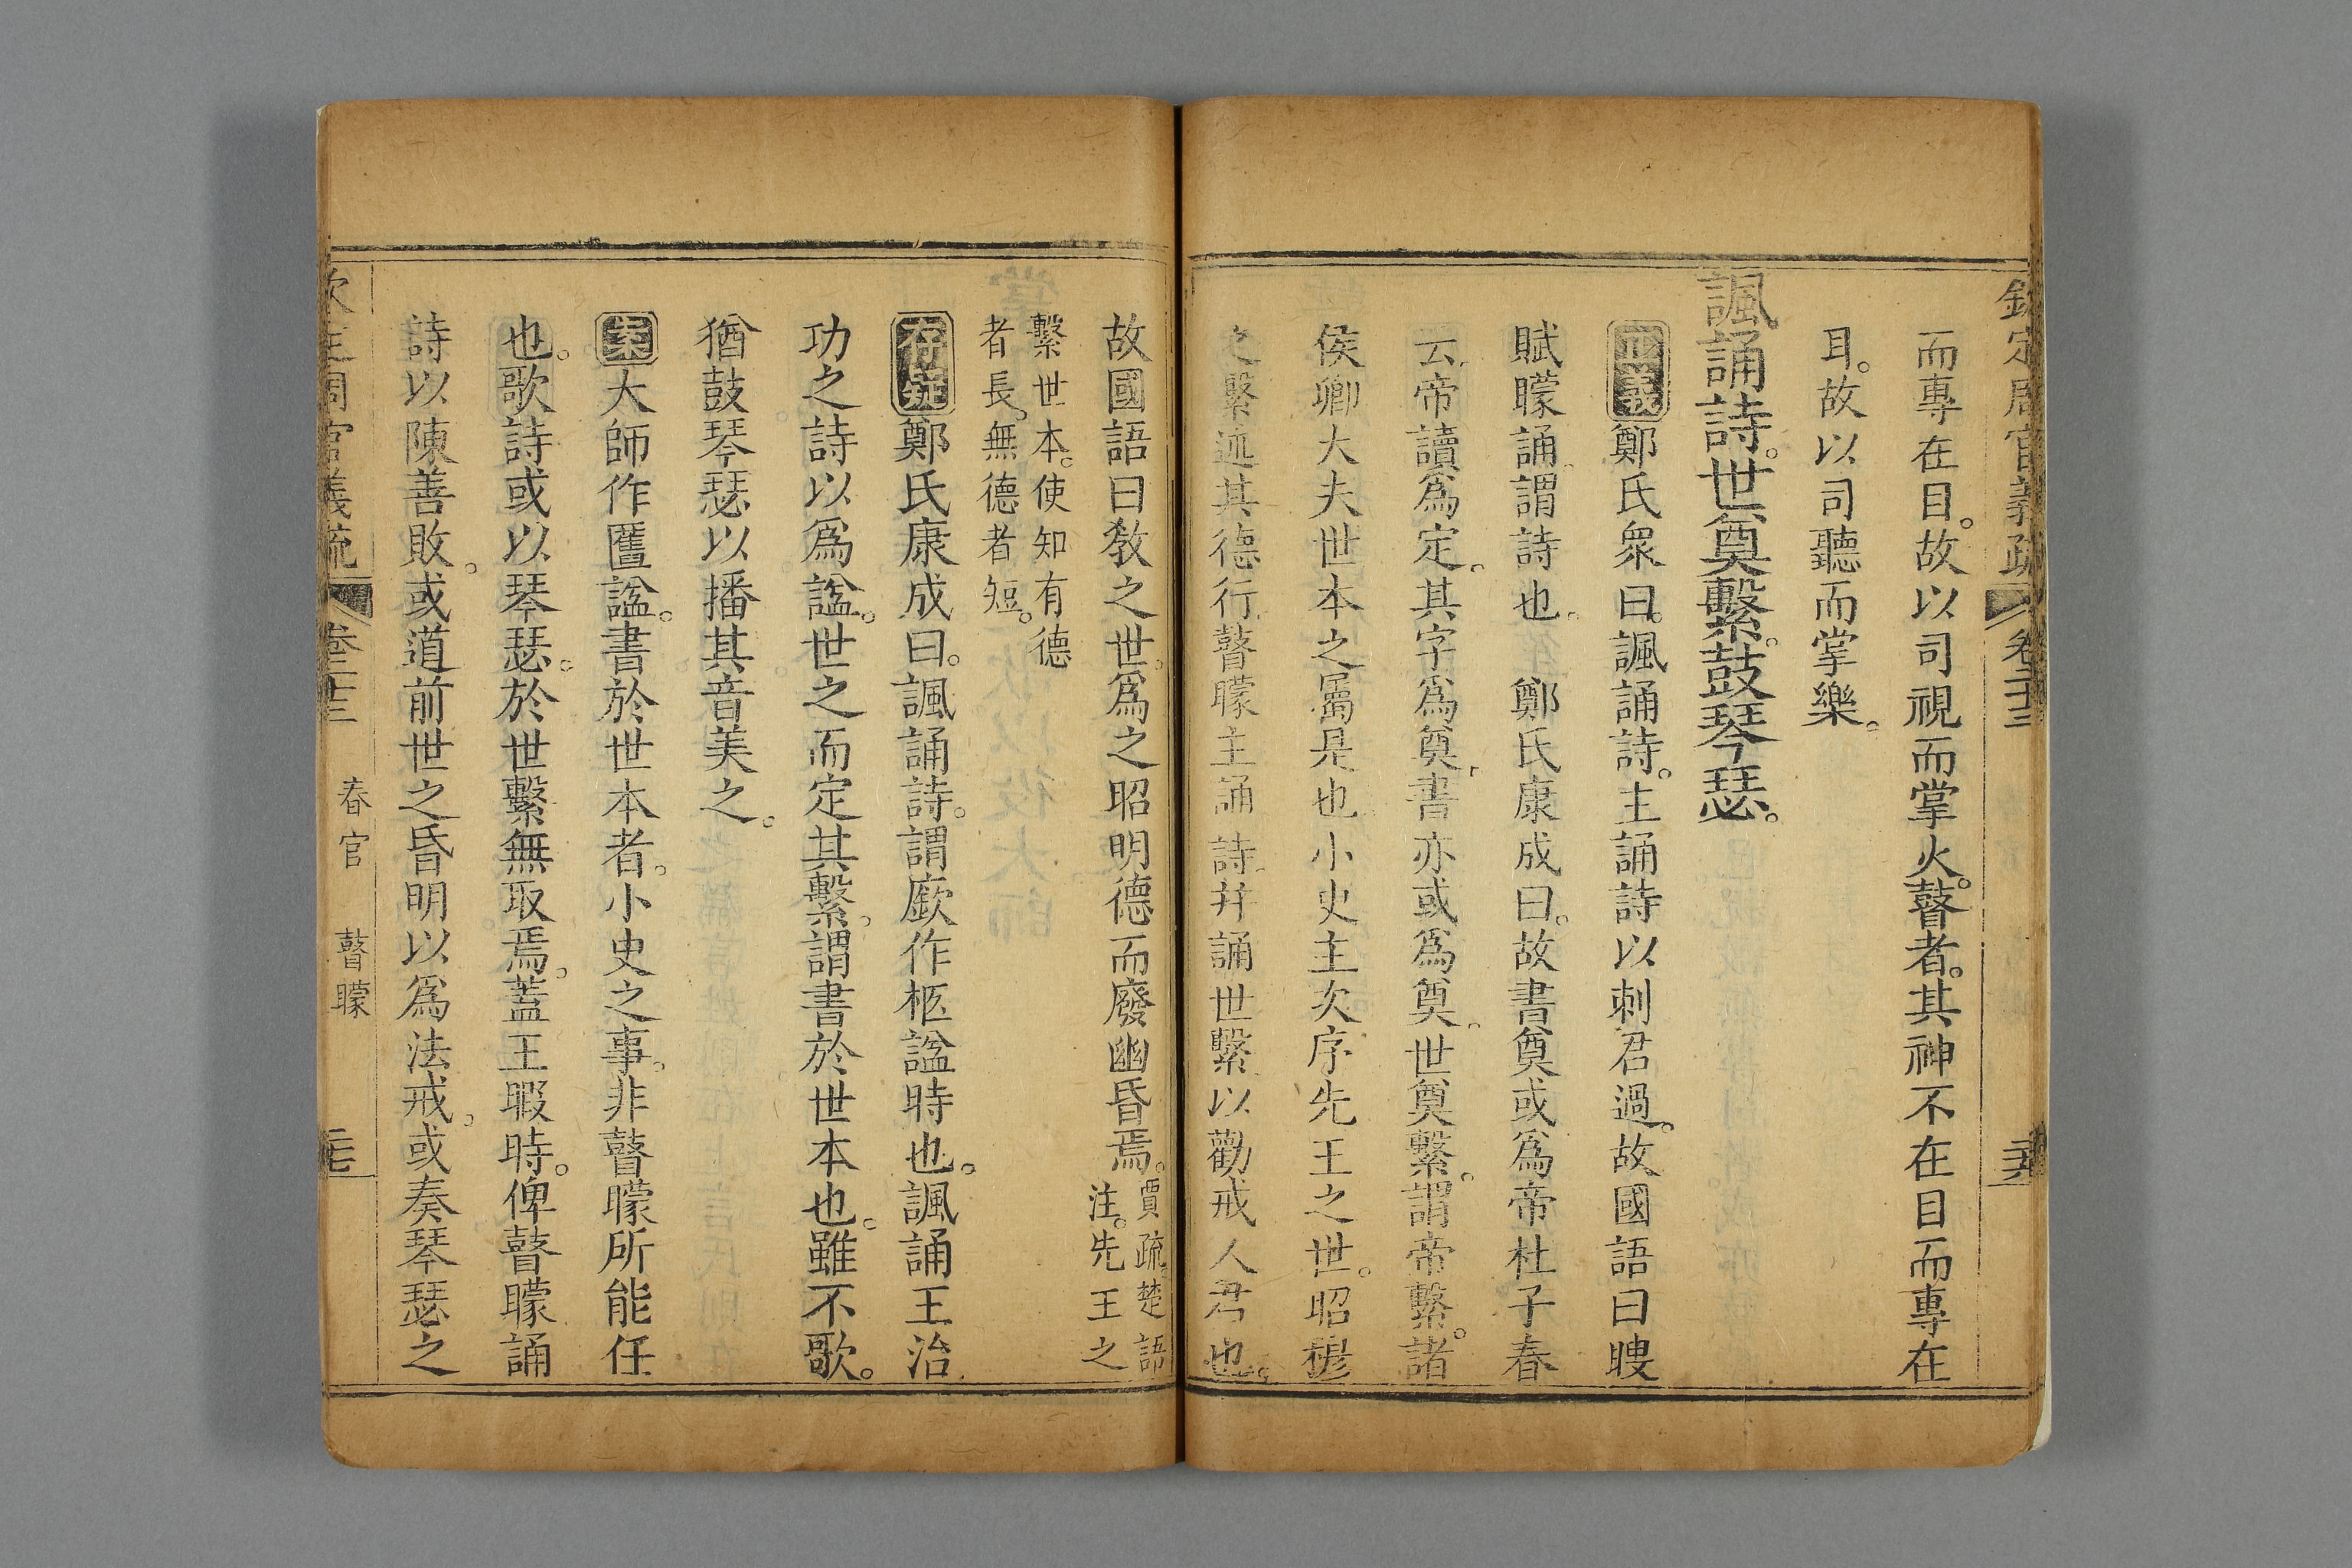 欽定周官義疏 卷二十三
而專在目。故以司視而掌火。瞽者。其神不在目而專在
耳。故以司聽而掌樂。
諷誦詩。世奠繫。鼓琴瑟。
正義鄭氏衆曰。諷誦詩。主誦詩以刺君過。故國語曰瞍
賦矇誦。謂詩也。 鄭氏康成曰。故書奠或爲帝杜子春
云。帝讀爲定。其字爲奠。書亦或爲奠。世奠繫。謂帝繫。諸
侯卿大夫世本之屬是也。小史主次序先王之世。昭穆
之繫。述其德行。瞽矇主誦詩。并誦世繫以勸戒人君也。
故國語曰教之世。爲之昭明德而廢幽昏焉。
賈疏。楚語
注。先王之
繫世本。使知有德
者長。無德者短。
存疑鄭氏康成曰。諷誦詩。謂廞作柩諡時也。諷誦王治
功之詩以爲諡。世之而定其繫。謂書於世本也。雖不歌。
猶鼓琴瑟以播其音美之。
案大師作匶諡。書於世本者。小史之事。非瞽矇所能任
也。歌詩或以琴瑟。於世繫無取焉。蓋王暇時。俾瞽矇誦
詩以陳善敗。或道前世之昏明以爲法戒。或奏琴瑟之
欽定周官義疏 卷二十三 春官 瞽矇